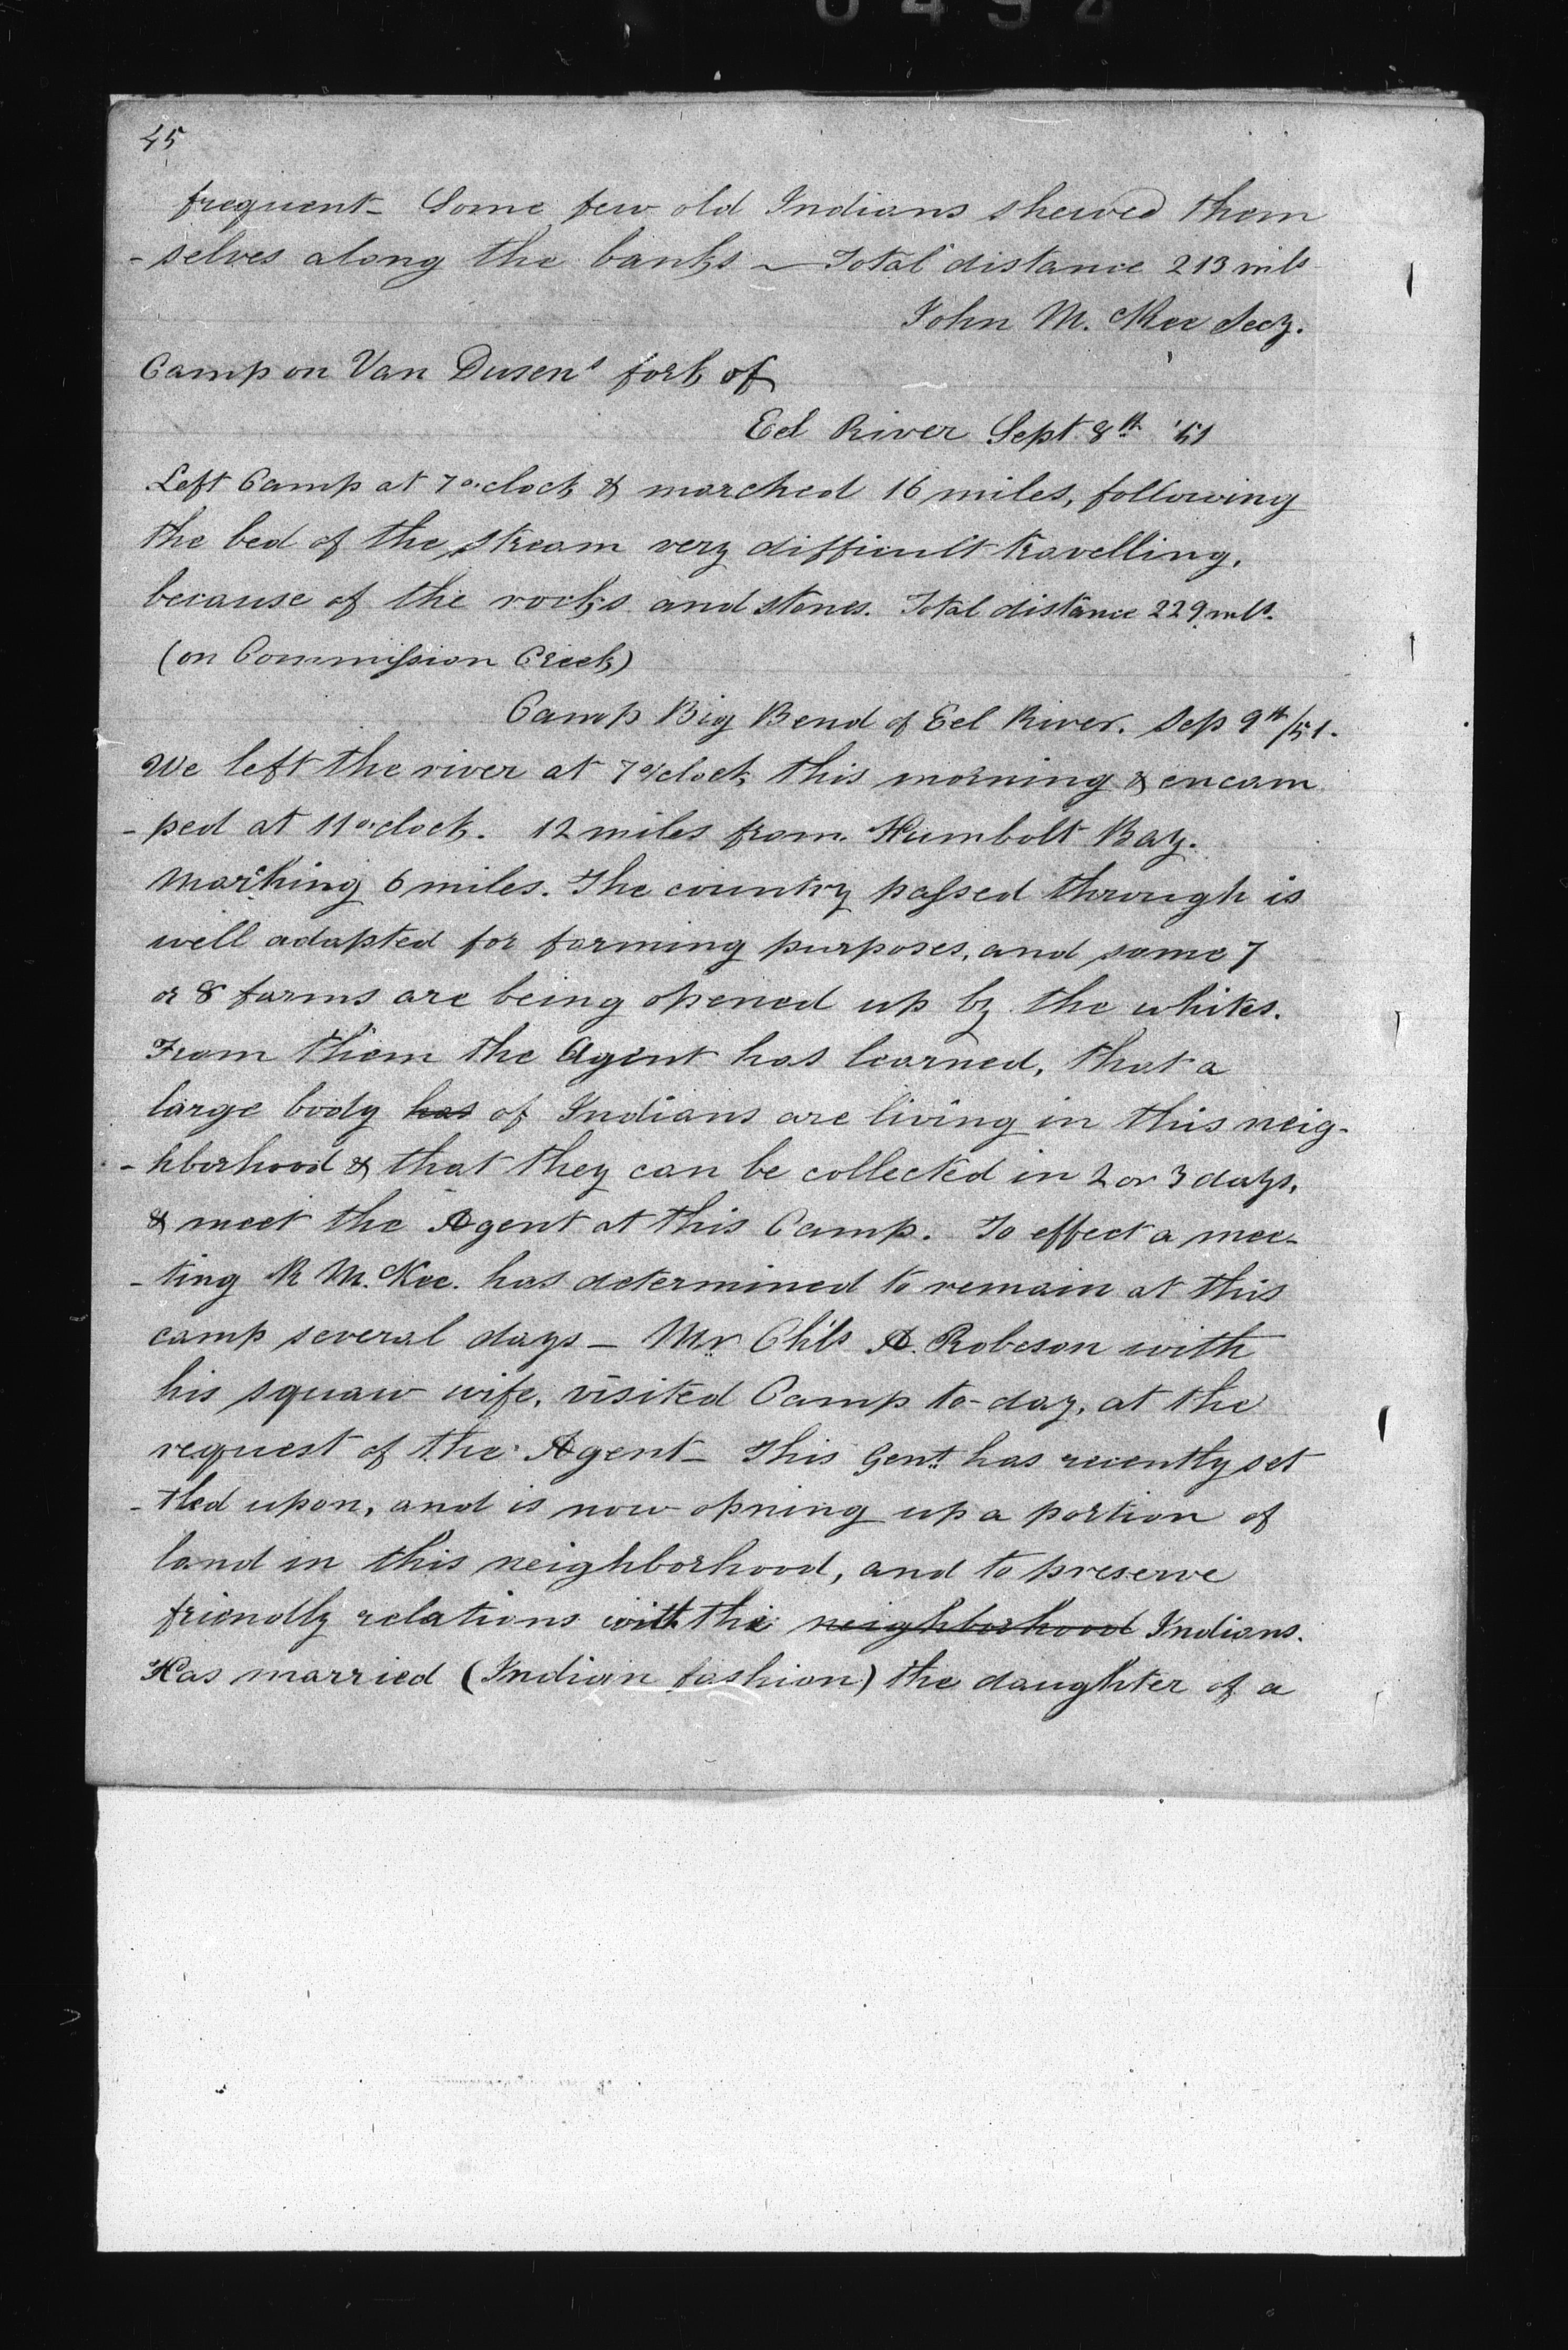 45
frequent - Some few old Indians shewed them
- selves along the banks - Total distance 213 mls
John McKee Secy.
Camp on Van Dusen's fork of
Eel River Sept. 8th '51
Left Camp at 7 o'clock & marched 16 miles, following
the bed of the stream very difficult travelling,
because of the rocks and stones. Total distance 229 mls.
(on Commission Creek)
Camp Big Bend of Eel River. Sep 9th/51.
We left the river at 7 o'clock this morning & encam
- ped at 11 o'clock. 12 miles from Humbolt Bay.
Marching 6 miles. The country passed through is
well adapted for farming purposes, and some 7
or 8 farms are being opened up by the whites.
From them the Agent has learned, that a
large body has of Indians are living in this neig-
- hborhood & that they can be collected in 2 or 3 days,
& meet the Agent at this Camp. To effect a mee-
- ting R McKee. has determined to remain at this
camp several days - Mr Chls A. Robeson with
his squaw wife, visited Camp to-day, at the
request of the Agent - This Gent. has recently set
- tled upon, and is now opning up a portion of
land in this neighborhood, and to preserve
friendly relations with the neighborhood Indians.
Has married (Indian fashion) the daughter of a